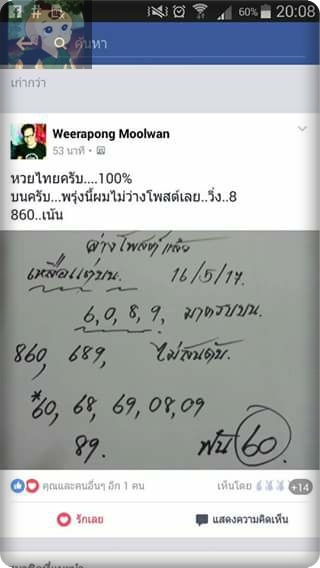 60% 20:08
ค้นหา
เก่ากว่า
Weerapong Moolwan
53 นาที
หวยไทยครับ....100%
บนครับ...พรุ่งนี้ผมไม่ว่างโพสต์เลย..วิ่ง..8
860..เน้น
ล่างโพสต์แล้ว
เหลือแต่บน. 16/5/17.
6,0,8,9, มาครบบน.
860, 689, ไม่เรียงลำดับ.
*60, 68, 69, 08, 09
89. ฟัน 60
คุณและคนอื่นๆ อีก 1 คน เห็นโดย +14
รักเลย แสดงความคิดเห็น